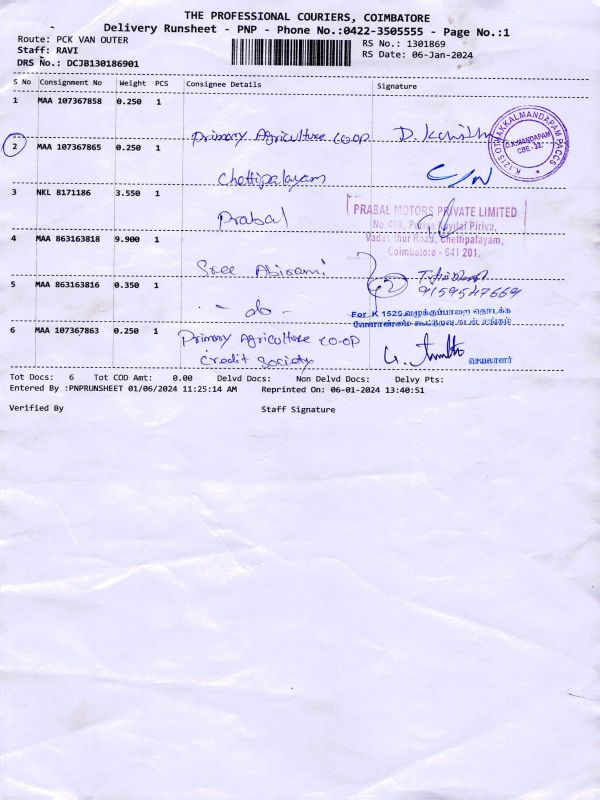 THE PROFESSIONAL COURIERS, COIMBATORE
Delivery Runsheet - PNP - Phone No.:0422-3505555 - Page No.:1
Route: PCK VAN OUTER
RS No.: 1301869
Staff: RAVI
RS Date: 06-Jan-2024
DRS No.: DCJB130186901
S No Consignment No Weight PCS Consignee Details Signature
1 MAA 107367858 0.250 1
Primary Agriculture co-op
K.1215 OTHAKKALMANDAPAM PACCS
O.K.MANDAPAM
CBE-32.
2 MAA 107367865 0.250 1
Chettipalayam C/N
3 NKL 8171186 3.550 1
Prabal
PRABAL MOTORS PRIVATE LIMITED
Vadasithur Road, Chettipalayam,
Coimbatore - 641 201.
4 MAA 863163818 9.900 1
Sree Abirami
9159547664
5 MAA 863163816 0.350 1
- do -
For K 1525 வழுக்குப்பாறை தொடக்க
வேளாண்மை கூட்டுறவு கடன் சங்கம்
6 MAA 107367863 0.250 1
Primary Agriculture co-op
credit society
செயலாளர்
Tot Docs: 6 Tot COD Amt: 0.00 Delvd Docs: Non Delvd Docs: Delvy Pts:
Entered By :PNPRUNSHEET 01/06/2024 11:25:14 AM Reprinted On: 06-01-2024 13:40:51
Verified By Staff Signature